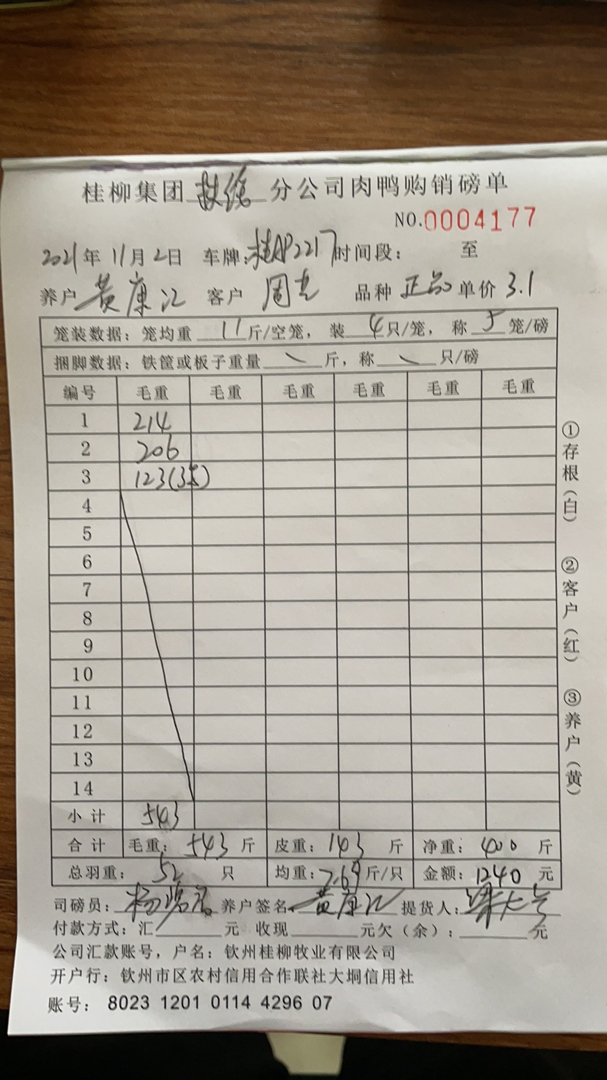 桂柳集团扶绥分公司肉鸭购销磅单
NO.0004177
2021年11月2日 车牌:桂AP2217时间段: 至
养户 黄康汇 客户 周 品种 正品 单价 3.1
笼装数据: 笼均重 11 斤/空笼, 装 4 只/笼, 称 5 笼/磅
捆脚数据: 铁筐或板子重量 \ 斤, 称 \ 只/磅
编号 毛重 毛重 毛重 毛重 毛重 毛重
1 214
2 206
3 123(3笼)
4
5
6
7
8
9
10
11
12
13
14
小计 543
合计 毛重: 543 斤 皮重: 143 斤 净重: 400 斤
总羽重: 52 只 均重: 7.69 斤/只 金额: 1240 元
司磅员: 杨 养户签名 黄康汇 提货人:
付款方式: 汇 元 收现 元欠(余): 元
公司汇款账号, 户名: 钦州桂柳牧业有限公司
开户行: 钦州市区农村信用合作联社大垌信用社
账号: 8023 1201 0114 4296 07
①存根(白)
②客户(红)
③养户(黄)